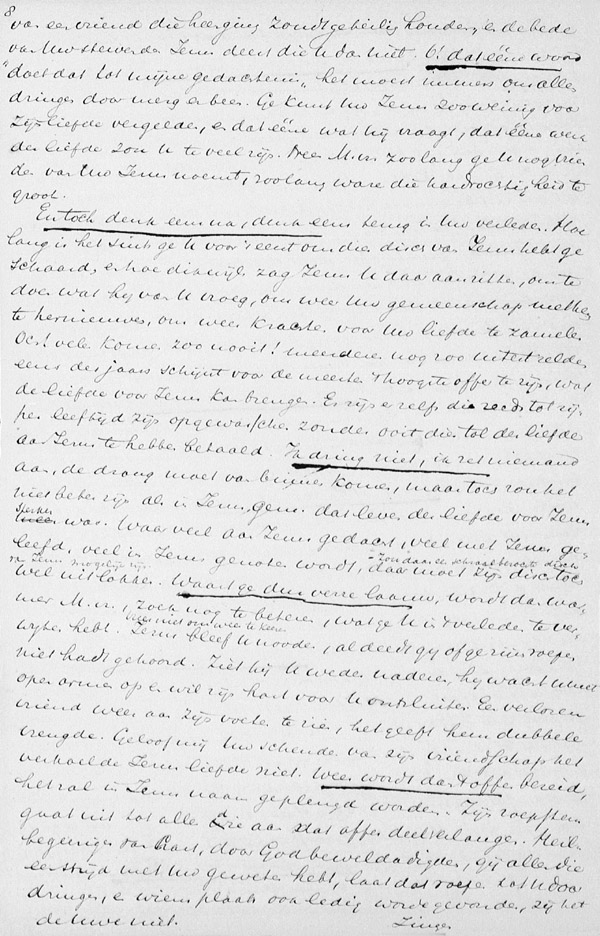 8
van een vriend die heenging zoudt ge heilig houden, en de bede
van Uw stervende Jezus deert die U dan niet. O! dat ééne woord
"doet dat tot mijne gedachtenis", het moest immers ons allen
dringen door merg en been. Ge kunt Uw Jezus zoo weinig voor
zijn liefde vergelden, en dat ééne wat hij vraagt, dat ééne werk
der liefde zou U te veel zijn. Neen M.vr. zoolang ge U nog vrien
den van Uw Jezus noemt, zoolang ware die hardvochtigheid te
groot.
En toch denk eens na, denk eens terug in Uw verleden. Hoe
lang is het sints ge U voor 't eerst om den disch van Jezus hebt ge
schaard, en hoe dikwijls zag Jezus U daar aanzitten, om te
doen wat hij van U vroeg, om weer Uw gemeenschap met hem
te hernieuwen, om weer krachten voor Uw liefde te zamelen.
Och! velen komen zoo nooit! meerderen nog zoo uiterst zelden
eens des jaars schijnt voor de meesten 't hoogste offer te zijn, wat
de liefde voor Jezus kan brengen. Er zijn er zelfs die reeds tot rij
pen leeftijd zijn opgewasschen zonder ooit dien tol der liefde
aan Jezus te hebben betaald. Ik dring niet, ik zet niemand
aan, de drang moet van binnen komen, maar toch zou het
niet beter zijn als in Jezus gem. dat leven der liefde voor Jezus
sterker
was. Waar veel aan Jezus gedacht, veel met Jezus ge
leefd, veel in Jezus genoten wordt, daar moet zijn disch toch
wel uitlokken. Waart ge dus verre laauw, wordt dan war
mer M.vr., zoek nog te beteren, wat ge U in 't verleden te ver
wijten hebt. Jezus bleef U nooden, al deedt gij of ge zijn roepen
niet hadt gehoord. Ziet hij U weder naderen, hij wacht U met
open armen op en wil zijn hart voor U ontsluiten. Een verloren
vriend weer aan zijn voeten te zien, het geeft hem dubbele
vreugde. Geloof mij Uw schenden van zijn vriendschap het
verkoelde Jezus liefde niet. Weer wordt dan 't offer bereid,
het zal in Jezus naam geplengd worden. Zijn roepstem
gaat uit tot allen die aan dat offer deel verlangen. Heil-
begeerigen van hart, door God beweldadigden, gij allen die
een strijd met Uw geweten hebt, laat dat roepen tot U door
dringen, en wiens plaats ook ledig worde gevonden, zij het
de Uwe niet.
Zingen